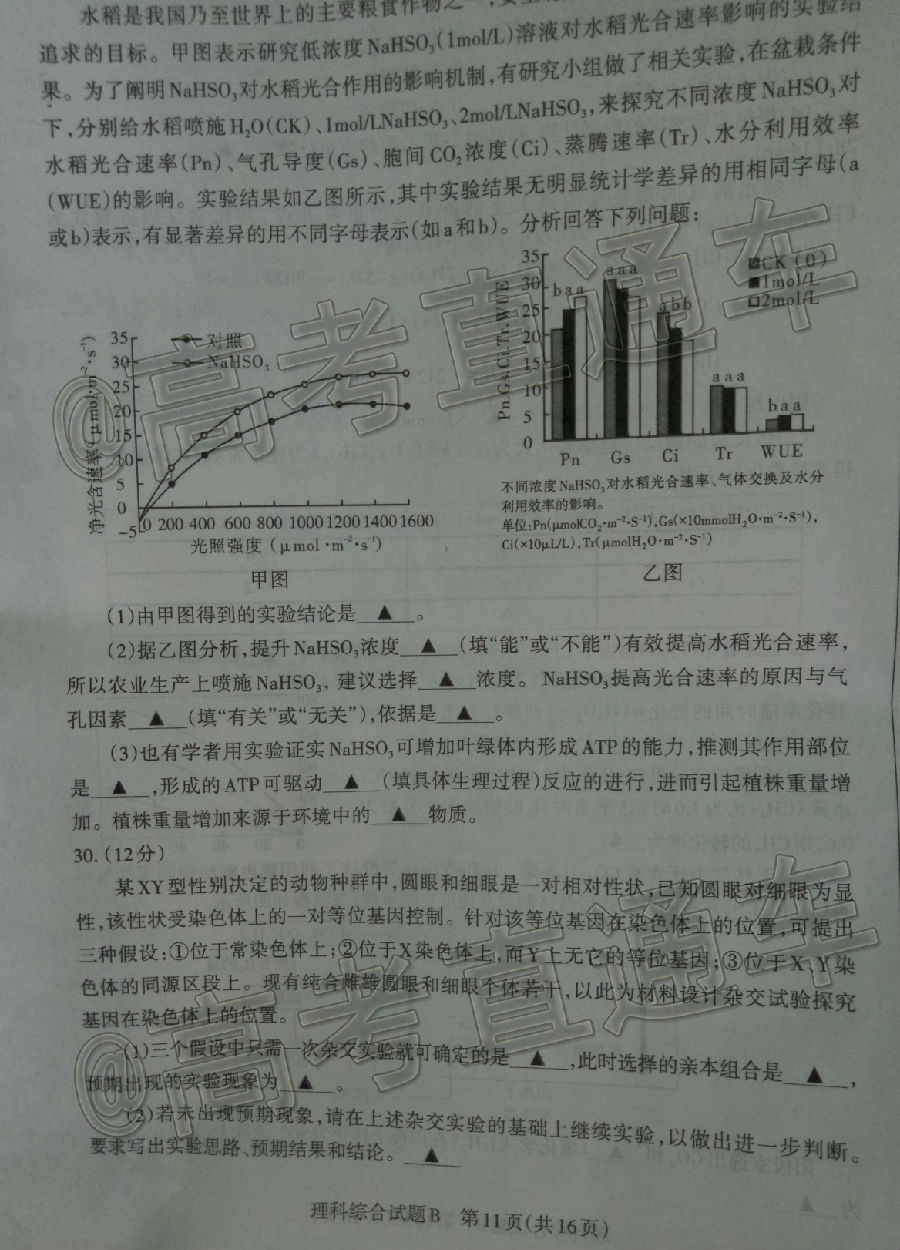 水稻是我国乃至世界上的主要粮食作物之一,
追求的目标。甲图表示研究低浓度NaHSO₃(1mol/L)溶液对水稻光合速率影响的实验结
果。为了阐明NaHSO₃对水稻光合作用的影响机制,有研究小组做了相关实验,在盆栽条件
下,分别给水稻喷施H₂O(CK)、1mol/LNaHSO₃、2mol/LNaHSO₃,来探究不同浓度NaHSO₃对
水稻光合速率(Pn)、气孔导度(Gs)、胞间CO₂浓度(Ci)、蒸腾速率(Tr)、水分利用效率
(WUE)的影响。实验结果如乙图所示,其中实验结果无明显统计学差异的用相同字母(a
或b)表示,有显著差异的用不同字母表示(如a和b)。分析回答下列问题:
净光合速率(μmol·m⁻²·s⁻¹)
35
30
25
20
15
10
5
0
-5
对照
NaHSO₃
0 200 400 600 800 1000 1200 1400 1600
光照强度(μmol·m⁻²·s⁻¹)
甲图
Pn.Gs.Ci.Tr.WUE
35
30
25
20
15
10
5
0
CK(0)
1mol/L
2mol/L
baa
aaa
abb
aaa
baa
Pn Gs Ci Tr WUE
不同浓度NaHSO₃对水稻光合速率、气体交换及水分
利用效率的影响。
单位:Pn(μmolCO₂·m⁻²·S⁻¹),Gs(×10mmolH₂O·m⁻²·S⁻¹),
Ci(×10μL/L),Tr(μmolH₂O·m⁻²·S⁻¹)
乙图
(1)由甲图得到的实验结论是▲。
(2)据乙图分析,提升NaHSO₃浓度▲(填“能”或“不能”)有效提高水稻光合速率,
所以农业生产上喷施NaHSO₃,建议选择▲浓度。NaHSO₃提高光合速率的原因与气
孔因素▲(填“有关”或“无关”),依据是▲。
(3)也有学者用实验证实NaHSO₃可增加叶绿体内形成ATP的能力,推测其作用部位
是▲,形成的ATP可驱动▲(填具体生理过程)反应的进行,进而引起植株重量增
加。植株重量增加来源于环境中的▲物质。
30.(12分)
某XY型性别决定的动物种群中,圆眼和细眼是一对相对性状,已知圆眼对细眼为显
性,该性状受染色体上的一对等位基因控制。针对该等位基因在染色体上的位置,可提出
三种假设:①位于常染色体上;②位于X染色体上,而Y上无它的等位基因;③位于X、Y染
色体的同源区段上。现有纯合雌雄圆眼和细眼个体若干,以此为材料设计杂交试验探究
基因在染色体上的位置。
(1)三个假设中只需一次杂交实验就可确定的是▲,此时选择的亲本组合是▲,
预期出现的实验现象为▲。
(2)若未出现预期现象,请在上述杂交实验的基础上继续实验,以做出进一步判断。
要求写出实验思路、预期结果和结论。▲
理科综合试题B 第11页(共16页)
@高考直通车
@高考直通车